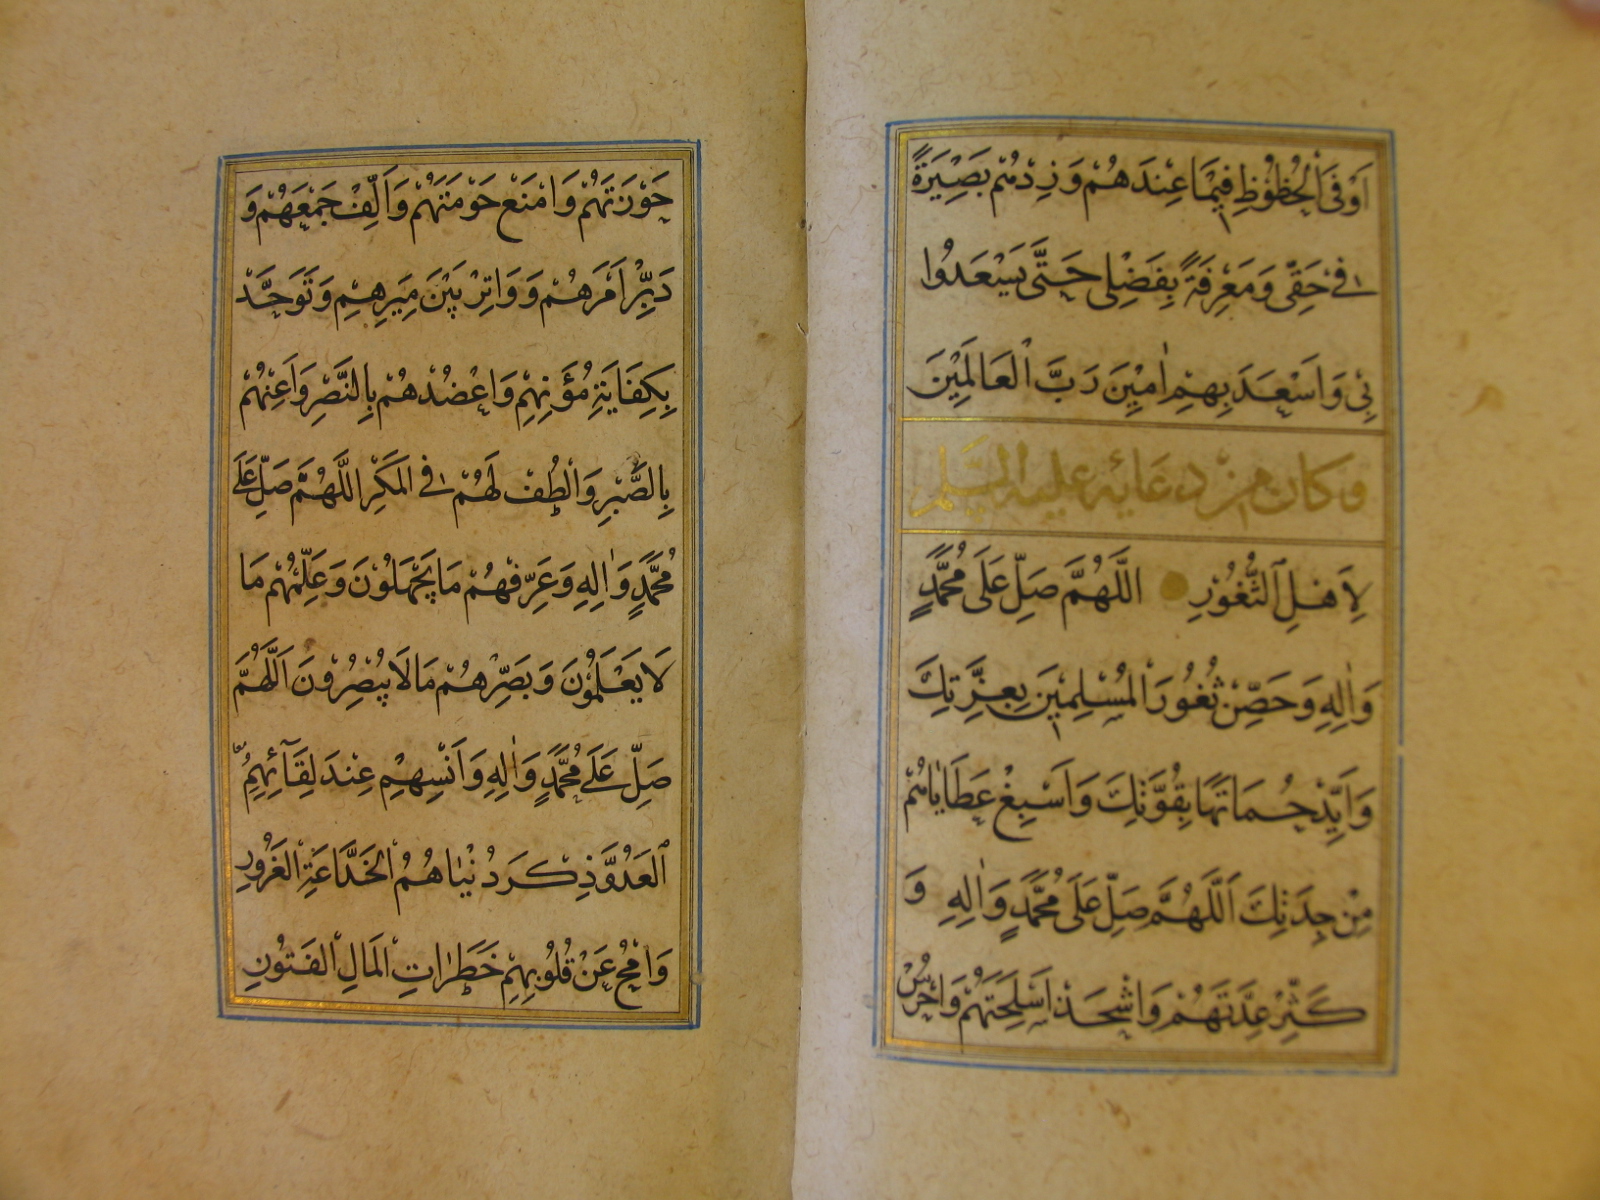 اَوْفَى الْحُظُوظِ فِيمَا عِنْدَهُمْ وَزِدْهُمْ بَصِيْرَةً
فِي حَقِّي وَمَعْرِفَةً بِفَضْلِي حَتّٰى يَسْعَدُوا
بِي وَاَسْعَدَ بِهِمْ اٰمِيْنَ رَبَّ الْعَالَمِيْنَ
وكان من دعائه عليه السلم
لِاَهْلِ الثُّغُوْرِ اللّٰهُمَّ صَلِّ عَلَى مُحَمَّدٍ
وَاٰلِهِ وَحَصِّنْ ثُغُورَ الْمُسْلِمِيْنَ بِعِزَّتِكَ
وَاَيِّدْ حُمَاتَهَا بِقُوَّتِكَ وَاَسْبِغْ عَطَايَاهُمْ
مِنْ جِدَتِكَ اَللّٰهُمَّ صَلِّ عَلَى مُحَمَّدٍ وَاٰلِهِ وَ
كَثِّرْ عِدَّتَهُمْ وَاشْحَذْ اَسْلِحَتَهُمْ وَاحْرُسْ
حَوْزَتَهُمْ وَامْنَعْ حَوْمَتَهُمْ وَاَلِّفْ جَمْعَهُمْ وَ
دَبِّرْ اَمْرَهُمْ وَوَاتِرْ بَيْنَ مِيَرِهِمْ وَتَوَحَّدْ
بِكِفَايَةِ مُؤَنِهِمْ وَاعْضُدْهُمْ بِالنَّصْرِ وَاَعِنْهُمْ
بِالصَّبْرِ وَالْطُفْ لَهُمْ فِي الْمَكْرِ اللّٰهُمَّ صَلِّ عَلَى
مُحَمَّدٍ وَاٰلِهِ وَعَرِّفْهُمْ مَا يَجْهَلُوْنَ وَعَلِّمْهُمْ مَا
لَا يَعْلَمُوْنَ وَبَصِّرْهُمْ مَا لَا يُبْصِرُوْنَ اَللّٰهُمَّ
صَلِّ عَلَى مُحَمَّدٍ وَاٰلِهِ وَاَنْسِهِمْ عِنْدَ لِقَآئِهِمُ
الْعَدُوَّ ذِكْرَ دُنْيَاهُمُ الْخَدَّاعَةِ الْغَرُوْرِ
وَامْحُ عَنْ قُلُوْبِهِمْ خَطَرَاتِ الْمَالِ الْفَتُونِ